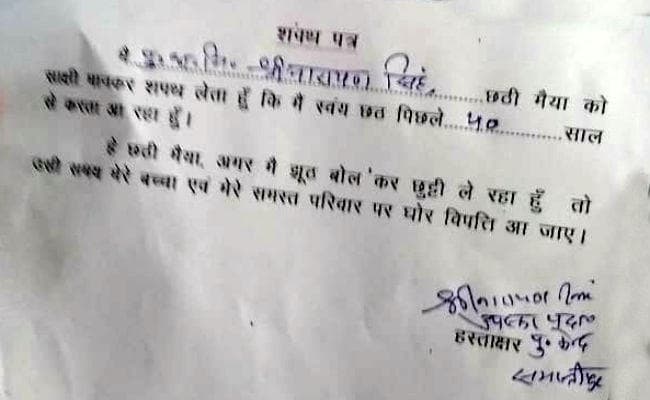 शपथ पत्र
मै पु.अ.नि. श्रीनारायण सिंह, छठी मैया को
साक्षी मानकर शपथ लेता हुँ कि मै स्वंय छठ पिछले ५० साल
से करता आ रहा हुँ।
हे छठी मैया, अगर मै झूठ बोल कर छुट्टी ले रहा हुँ तो
उसी समय मेरे बच्चा एवं मेरे समस्त परिवार पर घोर विपत्ति आ जाए।
श्रीनारायण सिंह
हस्ताक्षर पु॰ केन्द्र